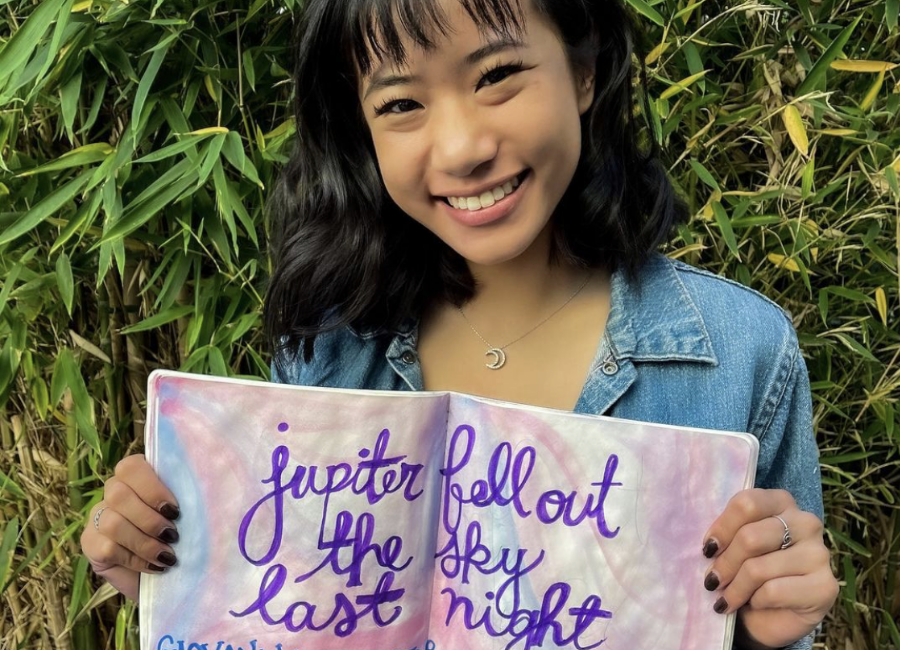 jupiter fell out
the sky
last night